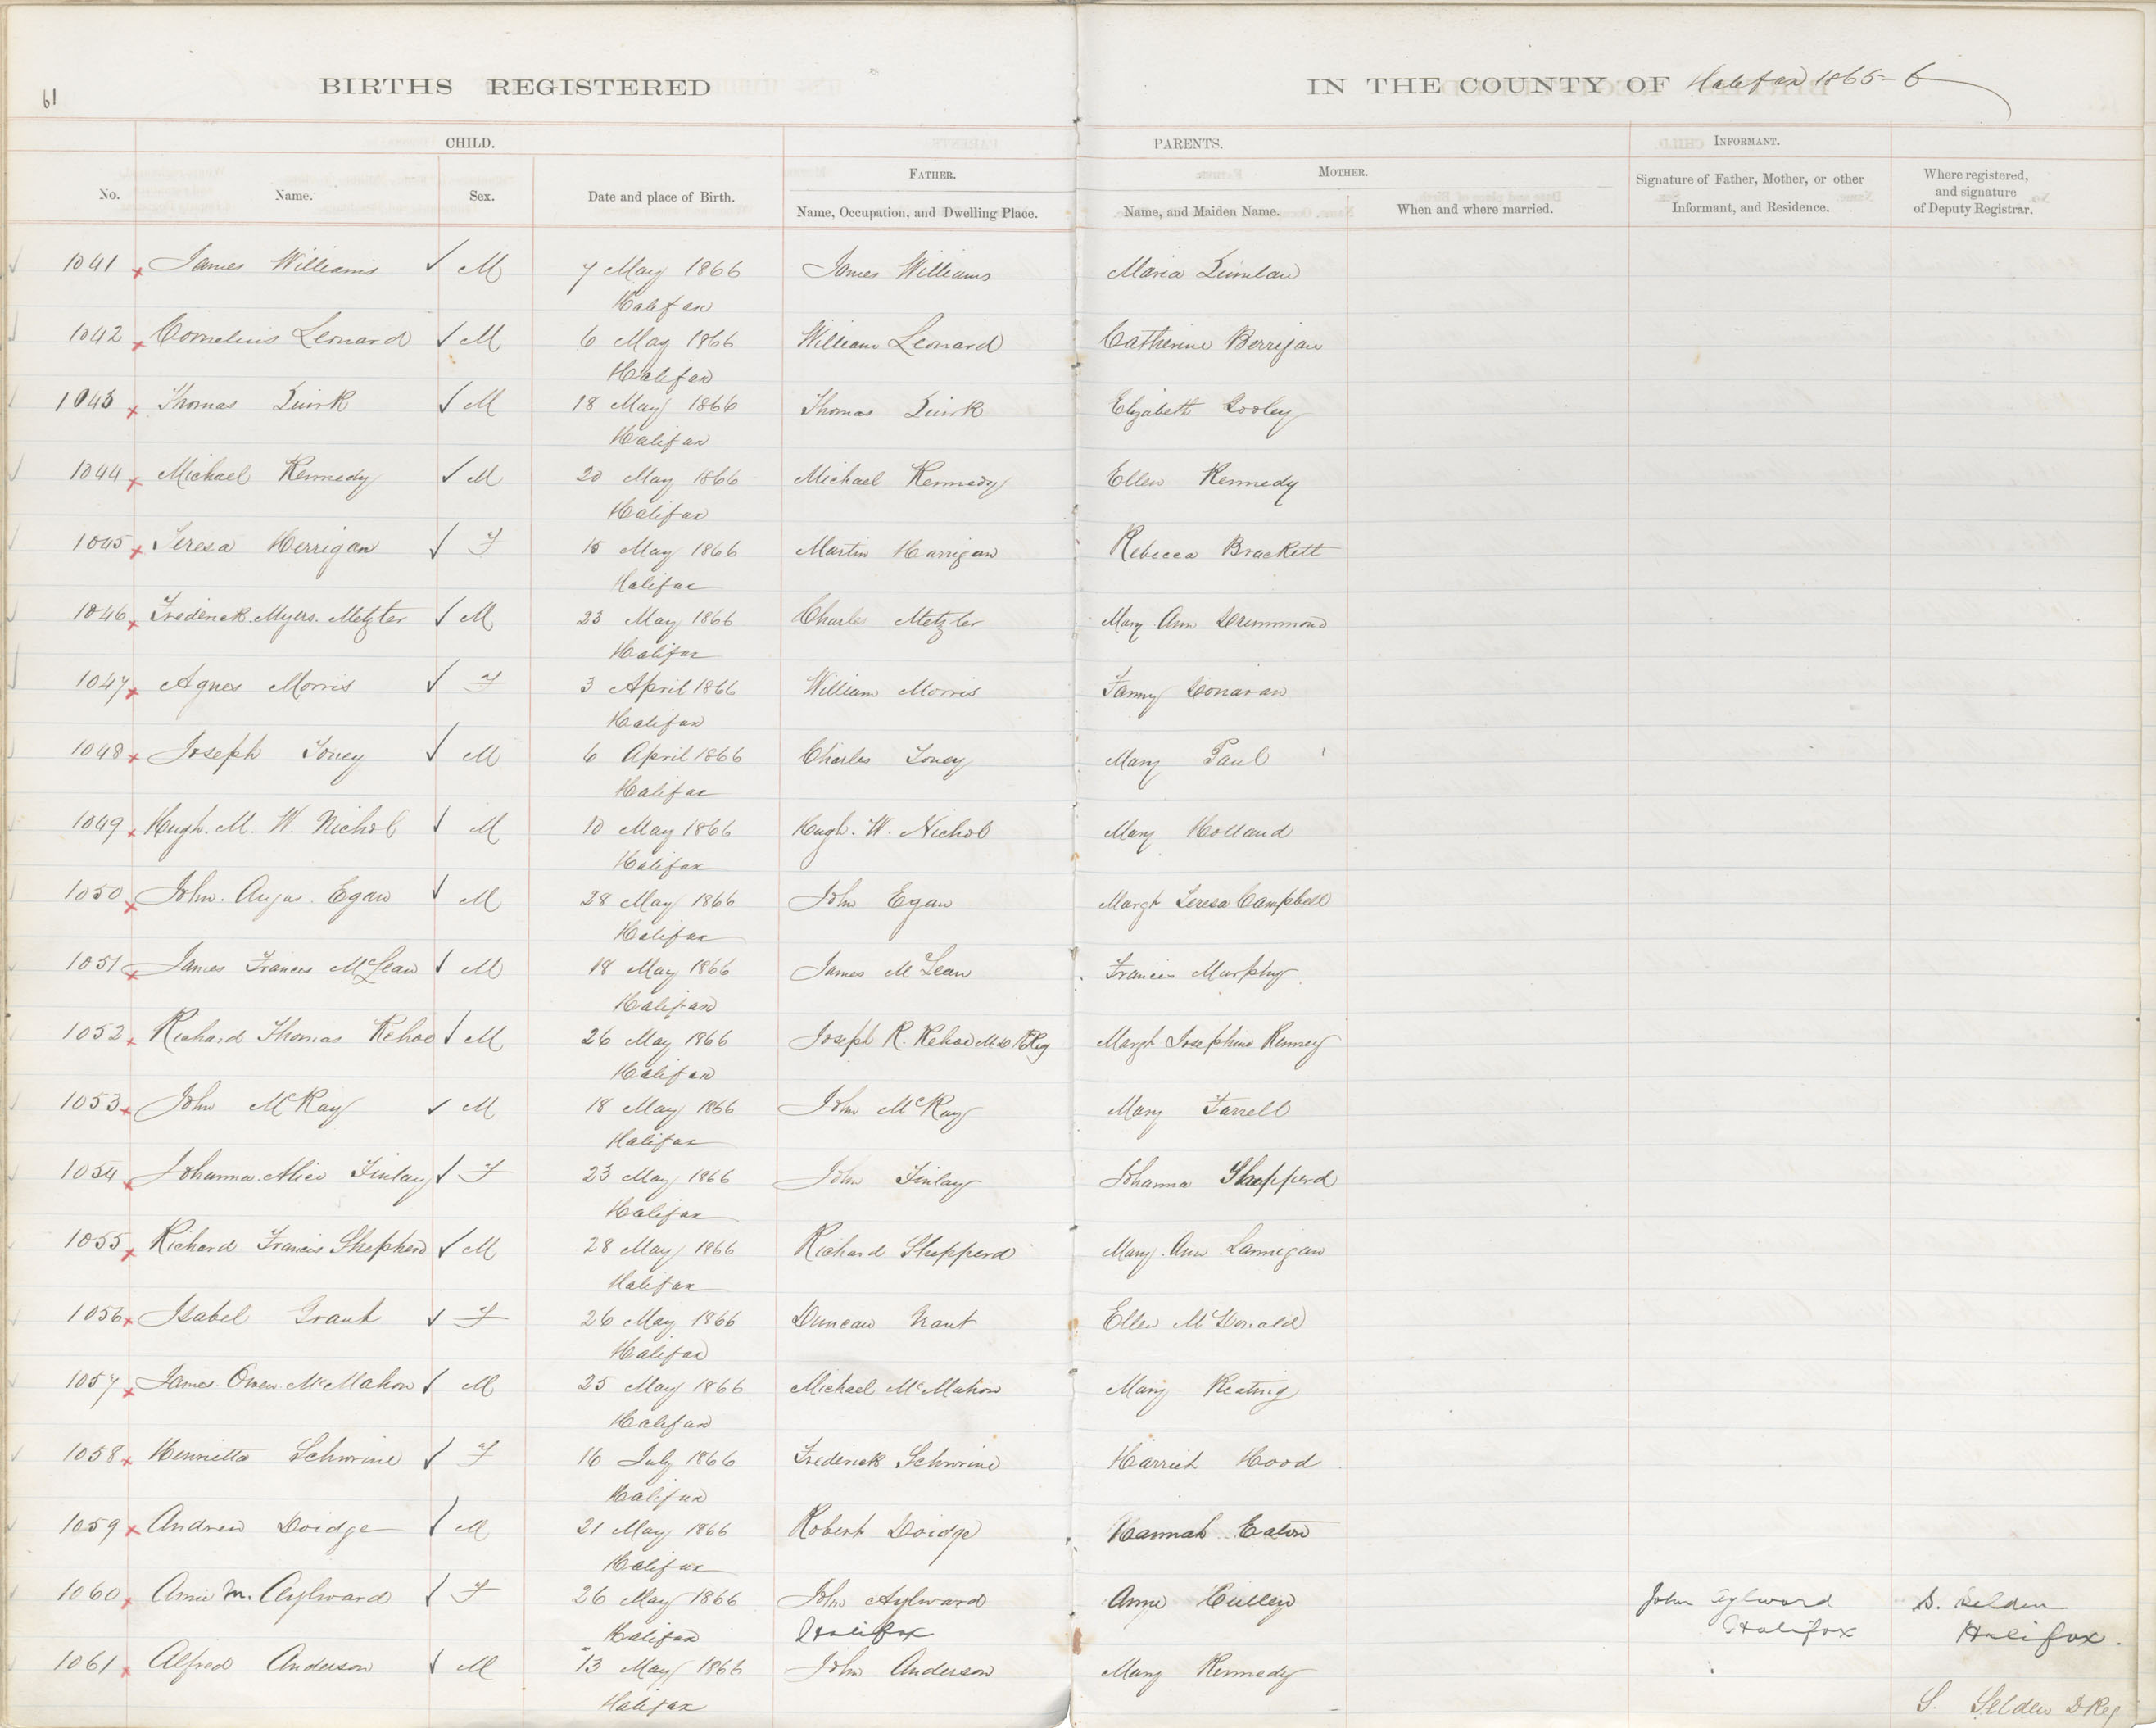 61
BIRTHS REGISTERED IN THE COUNTY OF Halifax 1865-6
CHILD. PARENTS. INFORMANT.
FATHER. MOTHER.
No. Name. Sex. Date and place of Birth. Name, Occupation, and Dwelling Place. Name, and Maiden Name. When and where married. Signature of Father, Mother, or other Informant, and Residence. Where registered, and signature of Deputy Registrar.
1041 James Williams M 7 May 1866 James Williams Maria Quinlan
Halifax
1042 Cornelius Leonard M 6 May 1866 William Leonard Catherine Berrigan
Halifax
1043 Thomas Quirk M 18 May 1866 Thomas Quirk Elizabeth Gooley
Halifax
1044 Michael Kennedy M 20 May 1866 Michael Kennedy Ellen Kennedy
Halifax
1045 Teresa Herrigan F 15 May 1866 Martin Harrigan Rebecca Brackett
Halifax
1046 Frederick Myers Metzler M 23 May 1866 Charles Metzler Mary Ann Drummond
Halifax
1047 Agnes Morris F 3 April 1866 William Morris Fanny Donavan
Halifax
1048 Joseph Toney M 6 April 1866 Charles Toney Mary Paul
Halifax
1049 Hugh. M. W. Nichol M 10 May 1866 Hugh. W. Nichol Mary Holland
Halifax
1050 John. Angus. Egan M 28 May 1866 John Egan Margt Teresa Campbell
Halifax
1051 James Frances McLean M 18 May 1866 James McLean Francis Murphy
Halifax
1052 Richard Thomas Kehoe M 26 May 1866 Joseph R. Kehoe Margt Josephine Kenney
Halifax
1053 John McKay M 18 May 1866 John McKay Mary Farrell
Halifax
1054 Johanna Alice Finlay F 23 May 1866 John Finlay Johanna Shepperd
Halifax
1055 Richard Francis Shepherd M 28 May 1866 Richard Shepperd Mary Ann Lannigan
Halifax
1056 Isabel Grant F 26 May 1866 Duncan Grant Ellen McDonald
Halifax
1057 James Owen McMahon M 25 May 1866 Michael McMahon Mary Keating
Halifax
1058 Henrietta Schwine F 16 July 1866 Frederick Schwine Harriet Hood
Halifax
1059 Andrew Doidge M 21 May 1866 Robert Doidge Hannah Eaton
Halifax
1060 Annie M. Aylward F 26 May 1866 John Aylward Anne Cullen John Aylward S. Selden
Halifax Halifax Halifax Halifax.
1061 Alfred Anderson M 13 May 1866 John Anderson Mary Kennedy
Halifax S. Selden D Reg